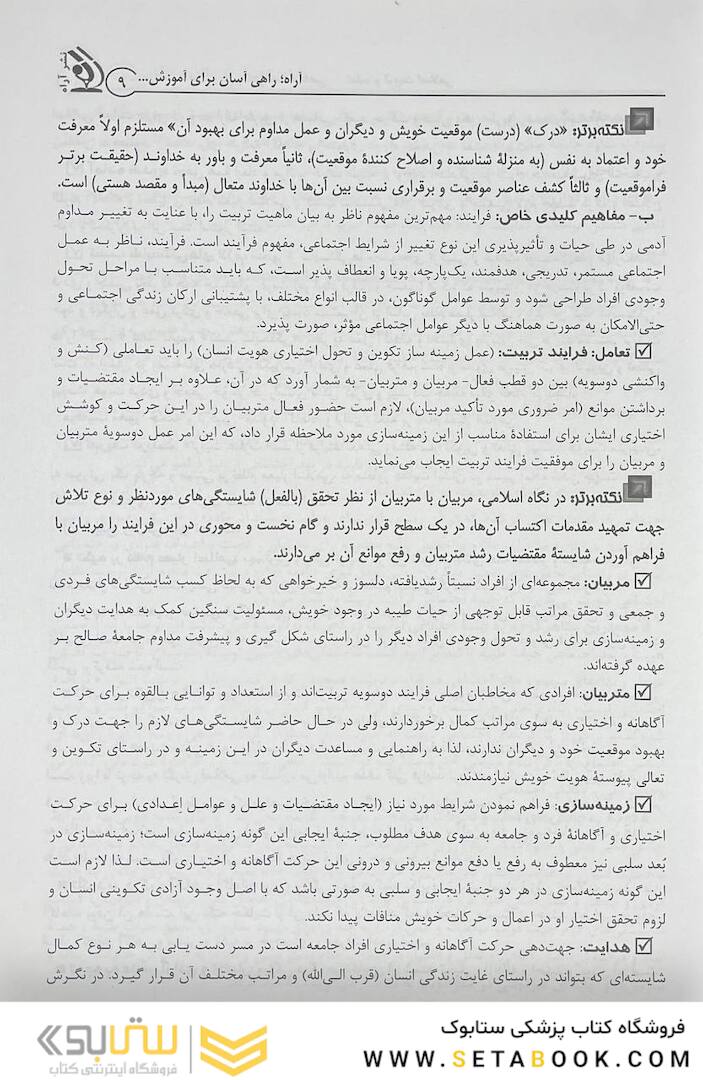 نشر آراه
۹
آراه؛ راهی آسان برای آموزش...
نکته‌برتر: «درک» (درست) موقعیت خویش و دیگران و عمل مداوم برای بهبود آن» مستلزم اولاً معرفت
خود و اعتماد به نفس (به منزلهٔ شناسنده و اصلاح کنندهٔ موقعیت)، ثانیاً معرفت و باور به خداوند (حقیقت برتر
فراموقعیت) و ثالثاً کشف عناصر موقعیت و برقراری نسبت بین آن‌ها با خداوند متعال (مبدأ و مقصد هستی) است.
ب- مفاهیم کلیدی خاص: فرایند: مهم‌ترین مفهوم ناظر به بیان ماهیت تربیت را، با عنایت به تغییـر مـداوم
آدمی در طی حیات و تأثیرپذیری این نوع تغییر از شرایط اجتماعی، مفهوم فرآیند است. فرآیند، ناظر به عمـل
اجتماعی مستمر، تدریجی، هدفمند، یک‌پارچه، پویا و انعطاف پذیر اسـت، کـه بایـد متناسـب بـا مراحـل تحـول
وجودی افراد طراحی شود و توسط عوامل گوناگون، در قالب انواع مختلف، با پشتیبانی ارکان زندگی اجتمـاعی و
حتی‌الامکان به صورت هماهنگ با دیگر عوامل اجتماعی مؤثر، صورت پذیرد.
☑ تعامل: فرایند تربیت: (عمل زمینه ساز تکوین و تحول اختیاری هویت انسان) را باید تعاملی (کـنش و
واکنشی دوسویه) بین دو قطب فعال- مربیان و متربیان- به شمار آورد که در آن، عـلاوه بـر ایجـاد مقتضـیات و
برداشتن موانع (امر ضروری مورد تأکید مربیان)، لازم است حضـور فعـال متربیـان را در ایـن حرکـت و کوشـش
اختیاری ایشان برای استفادهٔ مناسب از این زمینه‌سازی مورد ملاحظه قرار داد، که این امر عمل دوسویهٔ متربیان
و مربیان را برای موفقیت فرایند تربیت ایجاب می‌نماید.
نکته‌برتر: در نگاه اسلامی، مربیان با متربیان از نظر تحقق (بالفعل) شایستگی‌های موردنظر و نوع تلاش
جهت تمهید مقدمات اکتساب آن‌ها، در یک سطح قرار ندارند و گام نخست و محوری در این فرایند را مربیان با
فراهم آوردن شایستهٔ مقتضیات رشد متربیان و رفع موانع آن بر می‌دارند.
☑ مربیان: مجموعه‌ای از افراد نسبتاً رشدیافته، دلسوز و خیرخواهی که به لحاظ کسب شایستگی‌های فـردی
و جمعی و تحقق مراتب قابل توجهی از حیات طیبه در وجود خویش، مسئولیت سنگین کمک به هدایت دیگران
و زمینه‌سازی برای رشد و تحول وجودی افراد دیگر را در راستای شکل گیری و پیشرفت مداوم جامعهٔ صالح بـر
عهده گرفته‌اند.
☑ متربیان: افرادی که مخاطبان اصلی فرایند دوسویه تربیت‌اند و از استعداد و توانایی بالقوه بـرای حرکـت
آگاهانه و اختیاری به سوی مراتب کمال برخوردارند، ولی در حال حاضـر شایسـتگی‌های لازم را جهـت درک و
بهبود موقعیت خود و دیگران ندارند، لذا به راهنمایی و مساعدت دیگران در ایـن زمینـه و در راسـتای تکـوین و
تعالی پیوستهٔ هویت خویش نیازمندند.
☑ زمینه‌سازی: فراهم نمودن شرایط مورد نیاز (ایجاد مقتضیات و علـل و عوامـل اِعـدادی) بـرای حرکـت
اختیاری و آگاهانهٔ فرد و جامعه به سوی هدف مطلوب، جنبهٔ ایجابی این گونه زمینه‌سازی است؛ زمینه‌سـازی در
بُعد سلبی نیز معطوف به رفع یا دفع موانع بیرونی و درونی این حرکت آگاهانه و اختیـاری اسـت. لـذا لازم اسـت
این گونه زمینه‌سازی در هر دو جنبهٔ ایجابی و سلبی به صورتی باشد که با اصـل وجـود آزادی تکـوینی انسـان و
لزوم تحقق اختیار او در اعمال و حرکات خویش منافات پیدا نکند.
☑ هدایت: جهت‌دهی حرکت آگاهانه و اختیاری افراد جامعه است در مسر دست یابی به هـر نـوع کمـال
شایسته‌ای که بتواند در راستای غایت زندگی انسان (قرب الی‌الله) و مراتب مختلـف آن قـرار گیـرد. در نگـرش
فروشگاه کتاب پزشکی ستابوک
WWW.SETABOOK.COM
ستابوک
فروشگاه اینترنتی کتاب